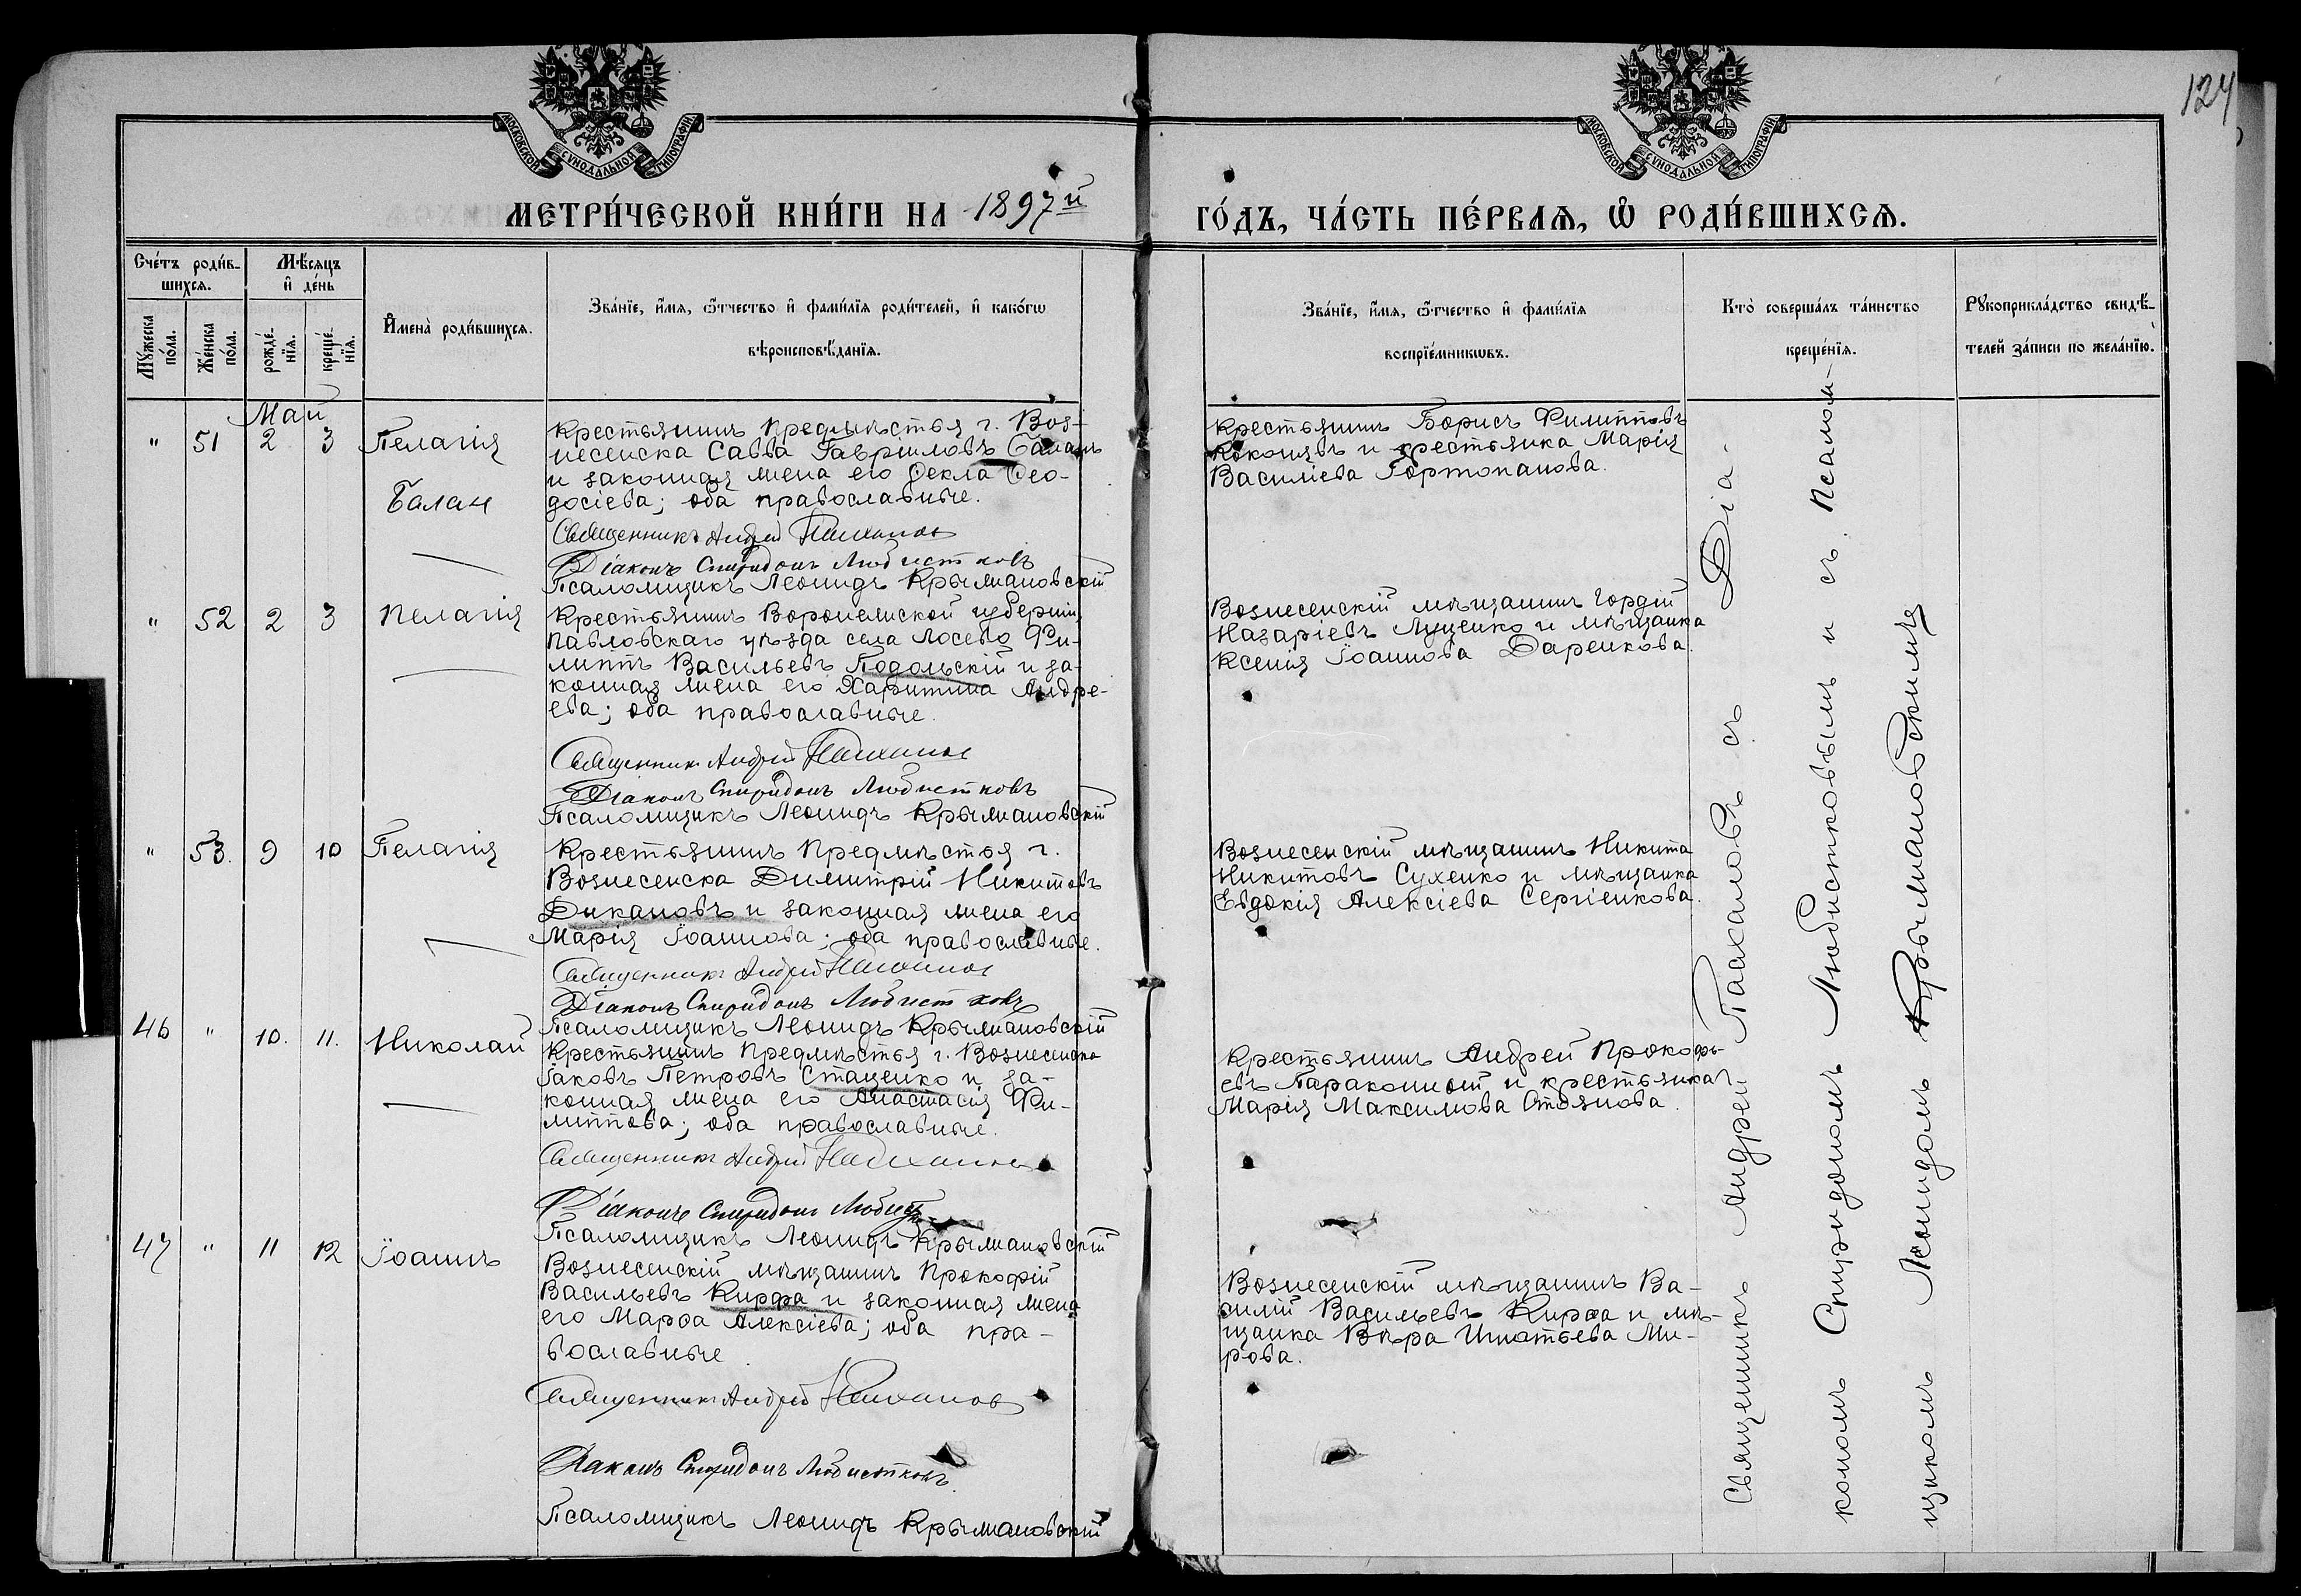 124
МОСКОВСКОЙ СѴНОДАЛЬНОЙ ТИПОГРАФІИ
МОСКОВСКОЙ СѴНОДАЛЬНОЙ ТИПОГРАФІИ
МЕТРИ́ЧЕСКОЙ КНИ́ГИ НА 1897й
ГО́ДЪ, ЧА́СТЬ ПЕ́РВАЯ, Ѡ РОДИ́ВШИХСЯ.
Сче́тъ роди́в-
шихся.
Мѣ́сяцъ
и де́нь
Мꙋ́жеска
по́ла.
Же́нска
по́ла.
рожде́-
нїя.
креще́-
нїя.
Имена̀ роди́вшихся.
Зва́нїе, и́мя, ѻ́тчество и фами́лїя роди́телей, и како́гѡ
вѣроисповѣ́данїя.
Зва́нїе, и́мя, ѻ́тчество и фами́лїя
воспрїе́мникѡвъ.
Кто̀ соверша́лъ та́инство
креще́нїя.
Рꙋкоприкла́дство свидѣ́-
телей за́писи по жела́нїю.
Май
" 51 2 3 Пелагія
Балан
Крестьянинъ предмѣстья г. Воз-
несенска Савва Гавріиловъ Баланъ
и законная жена его Ѳекла Ѳео-
досіева; оба православные.
Священникъ Андрей Пахалов
Діаконъ Спиридонъ Любистковъ
Псаломщикъ Леонидъ Крыжановскій
Крестьянинъ Борисъ Филипповъ
Кокошвъ и крестьянка Марія
Василіева Гортопанова.
" 52 2 3 Пелагія
Крестьянинъ Воронежской губерніи
Павловскаго уѣзда села Лосево Фи-
липпъ Васильевъ Подольскій и за-
конная жена его Харитина Андре-
ева; оба православные.
Священник Андрей Пахалов
Діаконъ Спиридонъ Любистковъ
Псаломщикъ Леонидъ Крыжановскій
Вознесенскій мѣщанинъ Гордій
Назаріевъ Луценко и мѣщанка
Ксенія Іоаннова Даренкова.
" 53. 9 10 Пелагія
Крестьянинъ предмѣстья г.
Вознесенска Димитрій Никитовъ
Дикановъ и законная жена его
Марія Іоаннова; оба православные.
Священникъ Андрей Пахалов
Діаконъ Спиридонъ Любистковъ
Псаломщикъ Леонидъ Крыжановскій
Вознесенскій мѣщанинъ Никита
Никитовъ Сухенко и мѣщанка
Евдокія Алексіева Сергіенкова.
46 " 10. 11. Николай
Крестьянинъ предмѣстья г. Вознесенска
Іаковъ Петровъ Стаценко и за-
конная жена его Анастасія Фи-
липпова; оба православные.
Священникъ Андрей Пахалов
Діаконъ Спиридонъ
Псаломщикъ Леонидъ Крыжановскій
Крестьянинъ Андрей Прокофь-
евъ Параконный и крестьянка
Марія Максимова Стоянова.
47 " 11 12 Іоаннъ
Вознесенскій мѣщанинъ Прокофій
Васильевъ Кирфа и законная жена
его Марѳа Алексіева; оба пра-
вославные.
Священникъ Андрей Пахалов
Діаконъ Спиридонъ Любистковъ.
Псаломщикъ Леонидъ Крыжановскій
Вознесенскій мѣщанинъ Ва-
силій Васильевъ Кирфа и мѣ-
щанка Вѣра Игнатьева Ми-
рова.
Священникъ Андрей Пахаловъ съ Діа-
кономъ Спиридономъ Любистковымъ и съ Псалом-
щикомъ Леонидомъ Крыжановскимъ